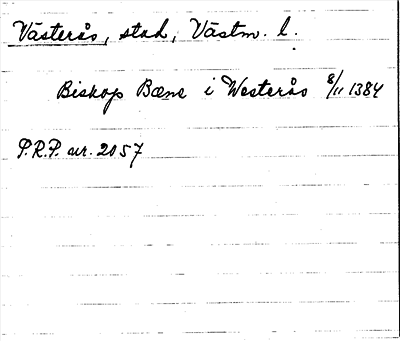 Västerås, stad, Västm. l.
Biskop Bæne i Westerås 8/11 1384
P.R.P. nr. 2057